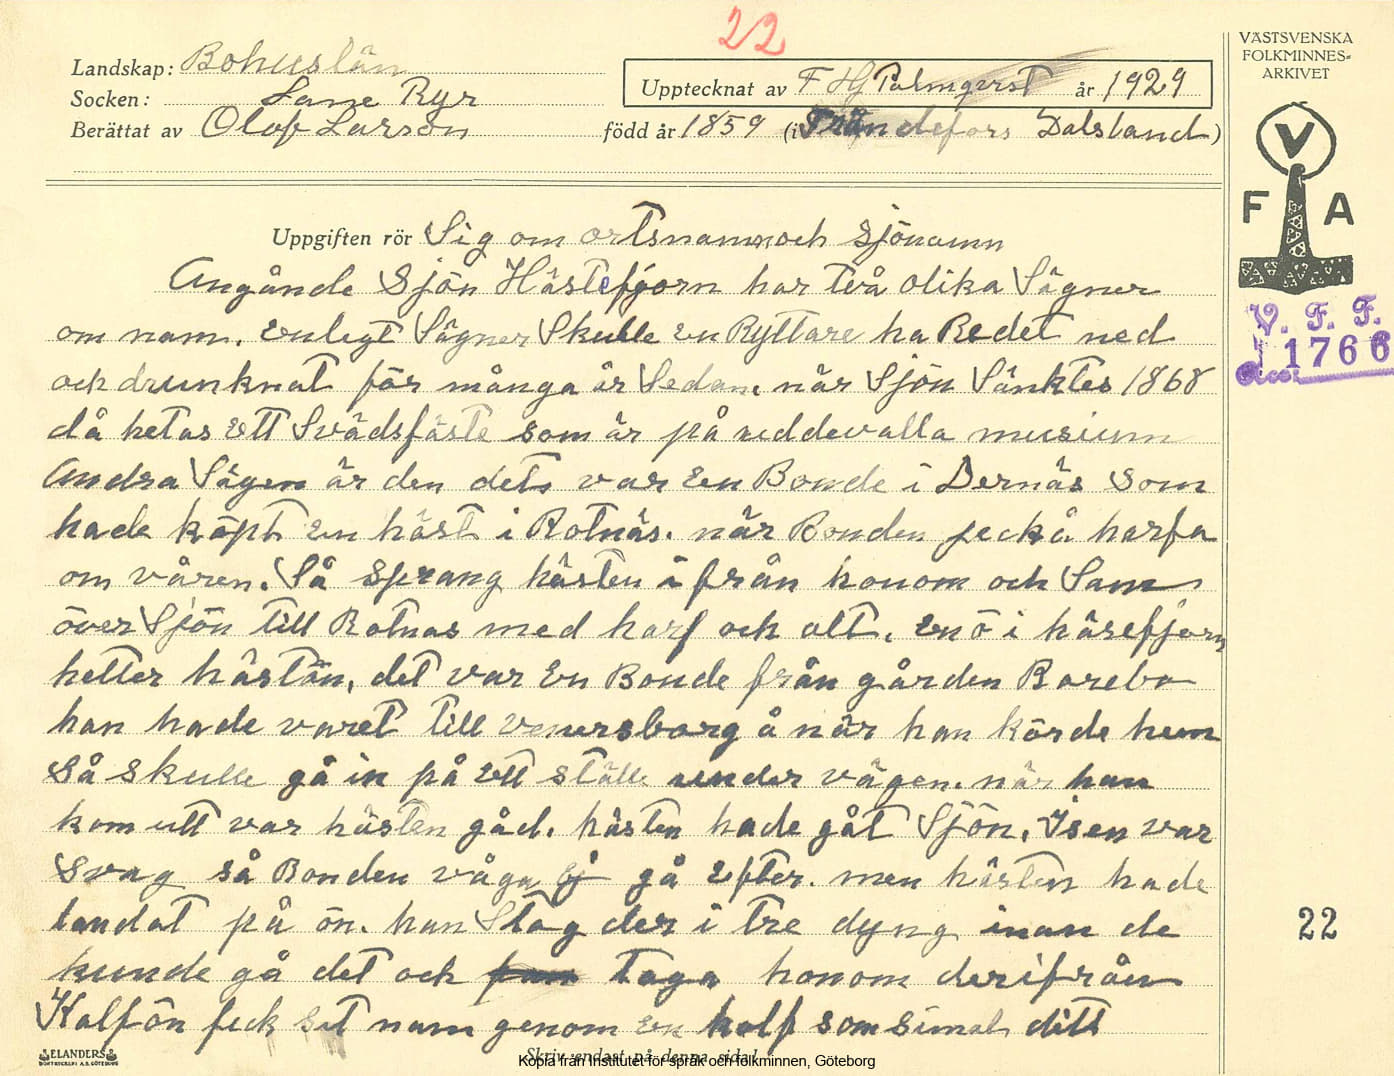 22
Landskap: Bohuslän
Socken: Lane Ryr
Berättat av Olof Larson
Upptecknat av F Hj Palmqvist år 1929
född år 1859 (i Frändefors Dalsland)
VÄSTSVENSKA
FOLKMINNES-
ARKIVET
V
F A
V. F. F.
Acc. 1766
Uppgiften rör Sig om ortsnamn och Sjönamn
Angånde Sjön Hästefjorn har två olika Sägner
om nam. Enligt Sägner Skulle en Ryttare ha Redet ned
och drunknat för många år Sedan, når Sjön Sänktes 1868
då hetas ett Svädsfäste som är på uddevalla musium
Andra Sägen är den dets var en Bonde i Dernäs som
hade köpt en häst i Rotnäs. når Bonden feck å harfa
om våren. Så Sprang hästen ifrån honom och Sam
över Sjön till Rotnas med harf och alt. en ö i häsefjorn
hetter hästön, det var en Bonde från gården Rarebo
han hade varet till venersborg å når han körde hem
Så skulle gå in på ett ställe under vägen. når han
kom utt var hästen gåd. hästen hade gåt Sjön. Isen var
Svag så Bonden våga Ej gå efter. men hästen hade
landat på ön. han Stog der i tre dyng inan de
kunde gå det och taga honom derifrån
Kalfön feck set nam genom en kalf som simat ditt
22
ELANDERS
BOKTRYCKERI A.B. GÖTEBORG
Skriv endast på denna sida!
Kopia från Institutet för språk och folkminnen, Göteborg